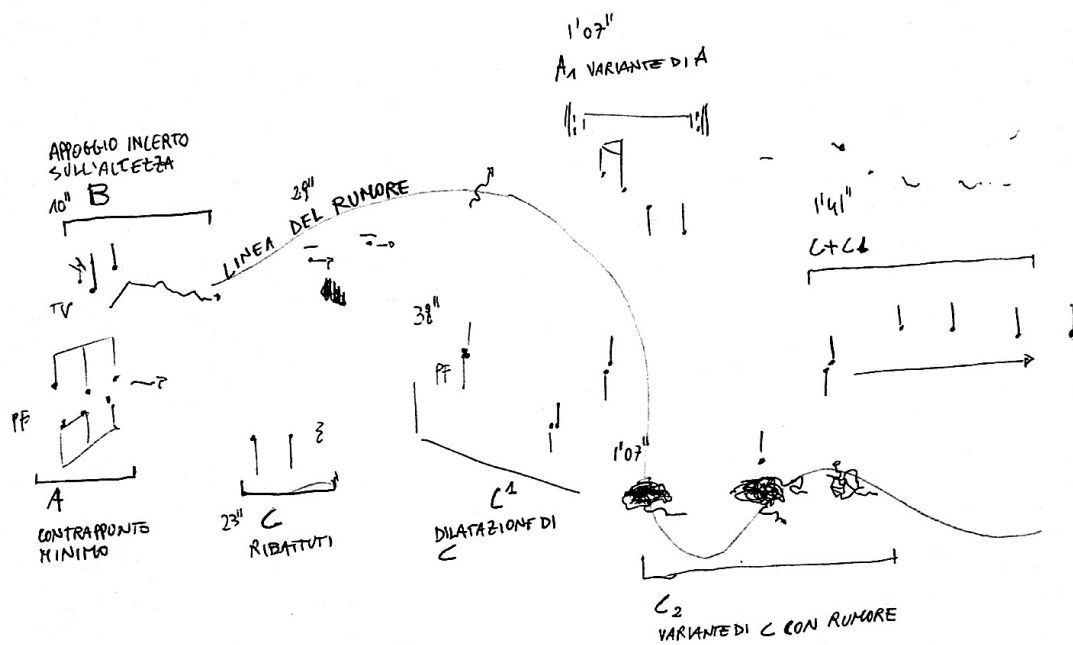 1'07"
A1 VARIANTE DI A
APPOGGIO INCERTO
SULL'ALTEZZA
10" B
29"
LINEA DEL RUMORE
1'41"
C+C1
38"
PF
PF
1'07"
A
CONTRAPPUNTO
MINIMO
23" C
RIBATTUTI
C1
DILATAZIONE DI
C
C2
VARIANTE DI C CON RUMORE